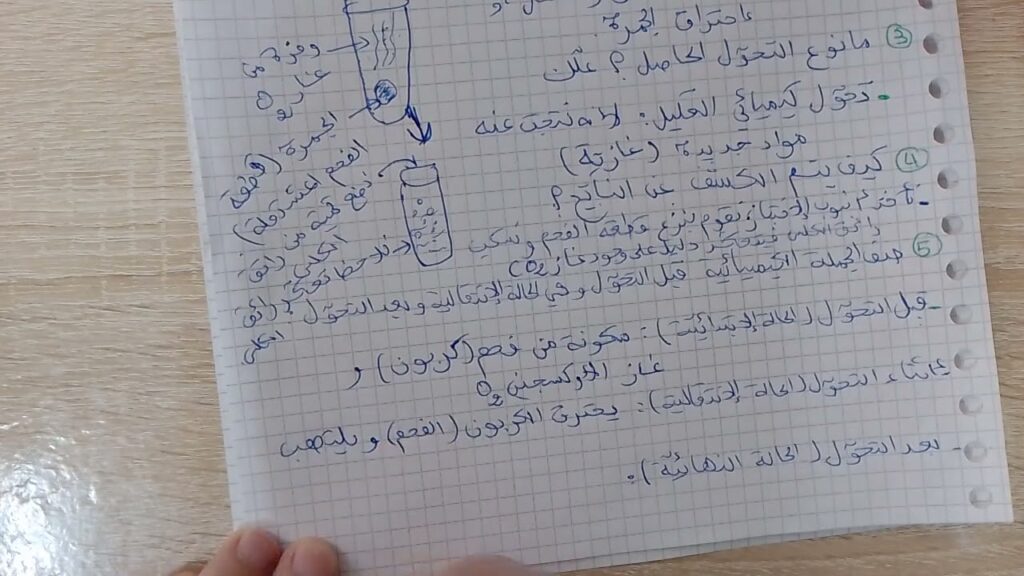 باحتراق الجمرة
③ ما نوع التحوّل الحاصل؟ علّل
- تحوّل كيميائي التعليل: لأنه نتجت عنه
مواد جديدة (غازية)
④ كيف يتم الكشف عن الناتج؟
نقوم بنزع قطعة الفحم ونسكب
رائق الكلس فيتعكر دليل على وجود غاز CO2)
⑤ صف الجملة الكيميائية قبل التحوّل وفي الحالة الإنتقالية وبعد التحوّل؟
- قبل التحوّل (الحالة الإبتدائية): مكونة من فحم (كربون) و
غاز الأوكسجين O2
أثناء التحوّل (الحالة الإنتقالية): يحترق الكربون (الفحم) ويلتهب
- بعد التحوّل (الحالة النهائية):
وفرة من
غاز O2
الجمرة (قطعة
الفحم المشتعلة)
نضع كمية من